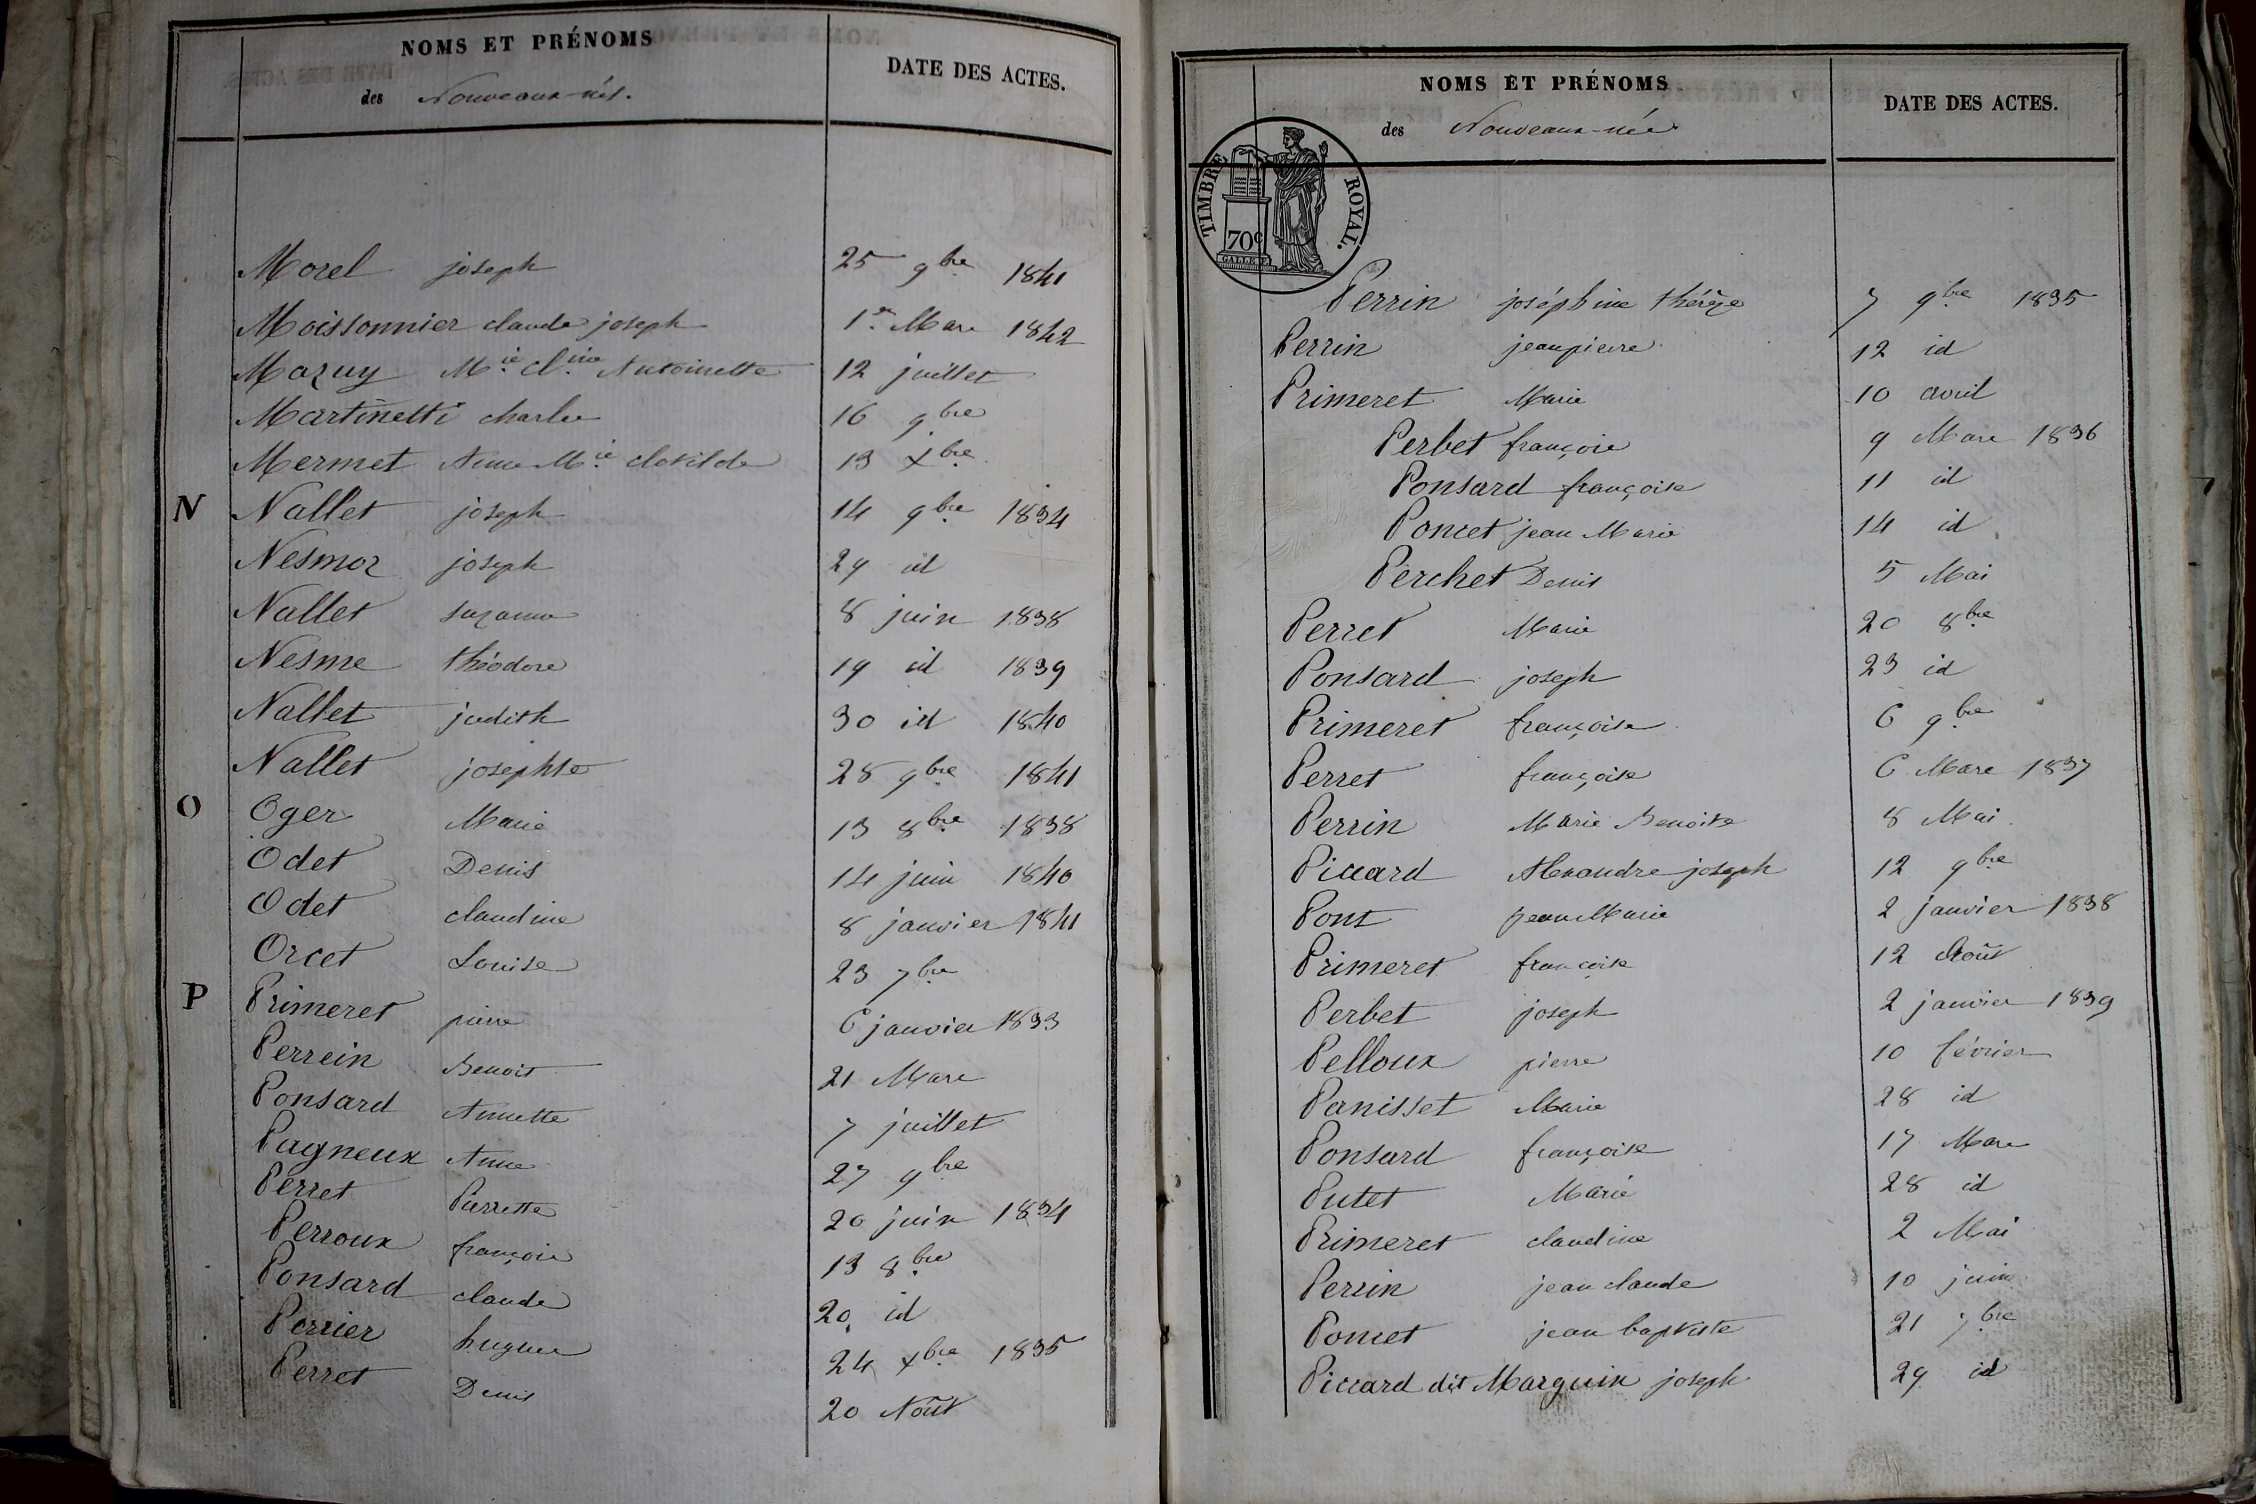 NOMS ET PRÉNOMS
des Nouveaux-nés.
DATE DES ACTES.
Morel joseph 25 9bre 1841
Moissonnier claude joseph 1er Mars 1842
Mazuy Mie Cl.ine Antoinette 12 juillet
Martinetti charles 16 9bre
Mermet Anne Mie clotilde 13 xbre
N Nallet joseph 14 9bre 1834
Nesmoz joseph 29 id
Nallet suzanne 8 juin 1838
Nesme théodore 19 id 1839
Nallet judith 30 id 1840
Nallet josephte 28 9bre 1841
O Oger Marie 13 8bre 1838
Odet Denis 14 juin 1840
Odet claudine 8 janvier 1841
Orcet Louise 23 7bre
P Primeret pierre 6 janvier 1833
Perrein Benoit 21 Mars
Ponsard Annette 7 juillet
Pagneux Anne 27 9bre
Perret Pierrette 20 juin 1834
Perroux françois 13 8bre
Ponsard claude 20 id
Perrier hugues 24 xbre 1835
Perret Denis 20 Août
NOMS ET PRÉNOMS
des Nouveaux-nés
DATE DES ACTES.
TIMBRE ROYAL.
70c
Perrin joséphine thérèze 7 9bre 1835
Perrin jean pierre 12 id
Primeret Marie 10 avril
Perbet françois 9 Mars 1836
Ponsard françoise 11 id
Poncet jean Marie 14 id
Perchet Denis 5 Mai
Perret Marie 20 8bre
Ponsard joseph 23 id
Primeret françoise 6 9bre
Perret françoise 6 Mars 1837
Perrin Marie Benoite 8 Mai
Piccard Alexandre joseph 12 9bre
Pont jean Marie 2 janvier 1838
Primeret françoise 12 Août
Perbet joseph 2 janvier 1839
Pelloux pierre 10 février
Panisset Marie 28 id
Ponsard françoise 17 Mars
Putet Marie 28 id
Primeret claudine 2 Mai
Perrin jean claude 10 juin
Poncet jean baptiste 21 7bre
Piccard dit Marguin joseph 29 id